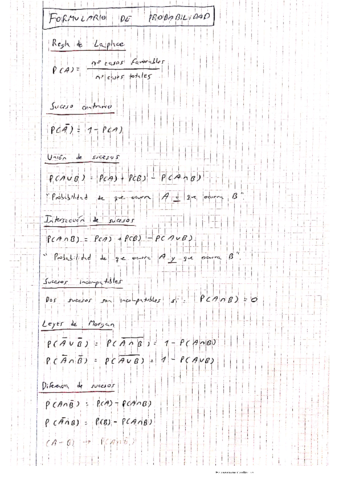 FORMULARIO DE PROBABILIDAD
Regla de Laplace
P(A) = nº casos favorables / nº casos totales
Suceso contrario
P(Ā) = 1 - P(A)
Unión de sucesos
P(A∪B) = P(A) + P(B) - P(A∩B)
"Probabilidad de que ocurra A o que ocurra B"
Intersección de sucesos
P(A∩B) = P(A) + P(B) - P(A∪B)
"Probabilidad de que ocurra A y que ocurra B"
Sucesos incompatibles
Dos sucesos son incompatibles si: P(A∩B) = 0
Leyes de Morgan
P(Ā∪B̄) = P(A̅∩̅B̅) = 1 - P(A∩B)
P(Ā∩B̄) = P(A̅∪̅B̅) = 1 - P(A∪B)
Diferencia de sucesos
P(A∩B̄) = P(A) - P(A∩B)
P(Ā∩B) = P(B) - P(A∩B)
(A-B) → P(A∩B̄)